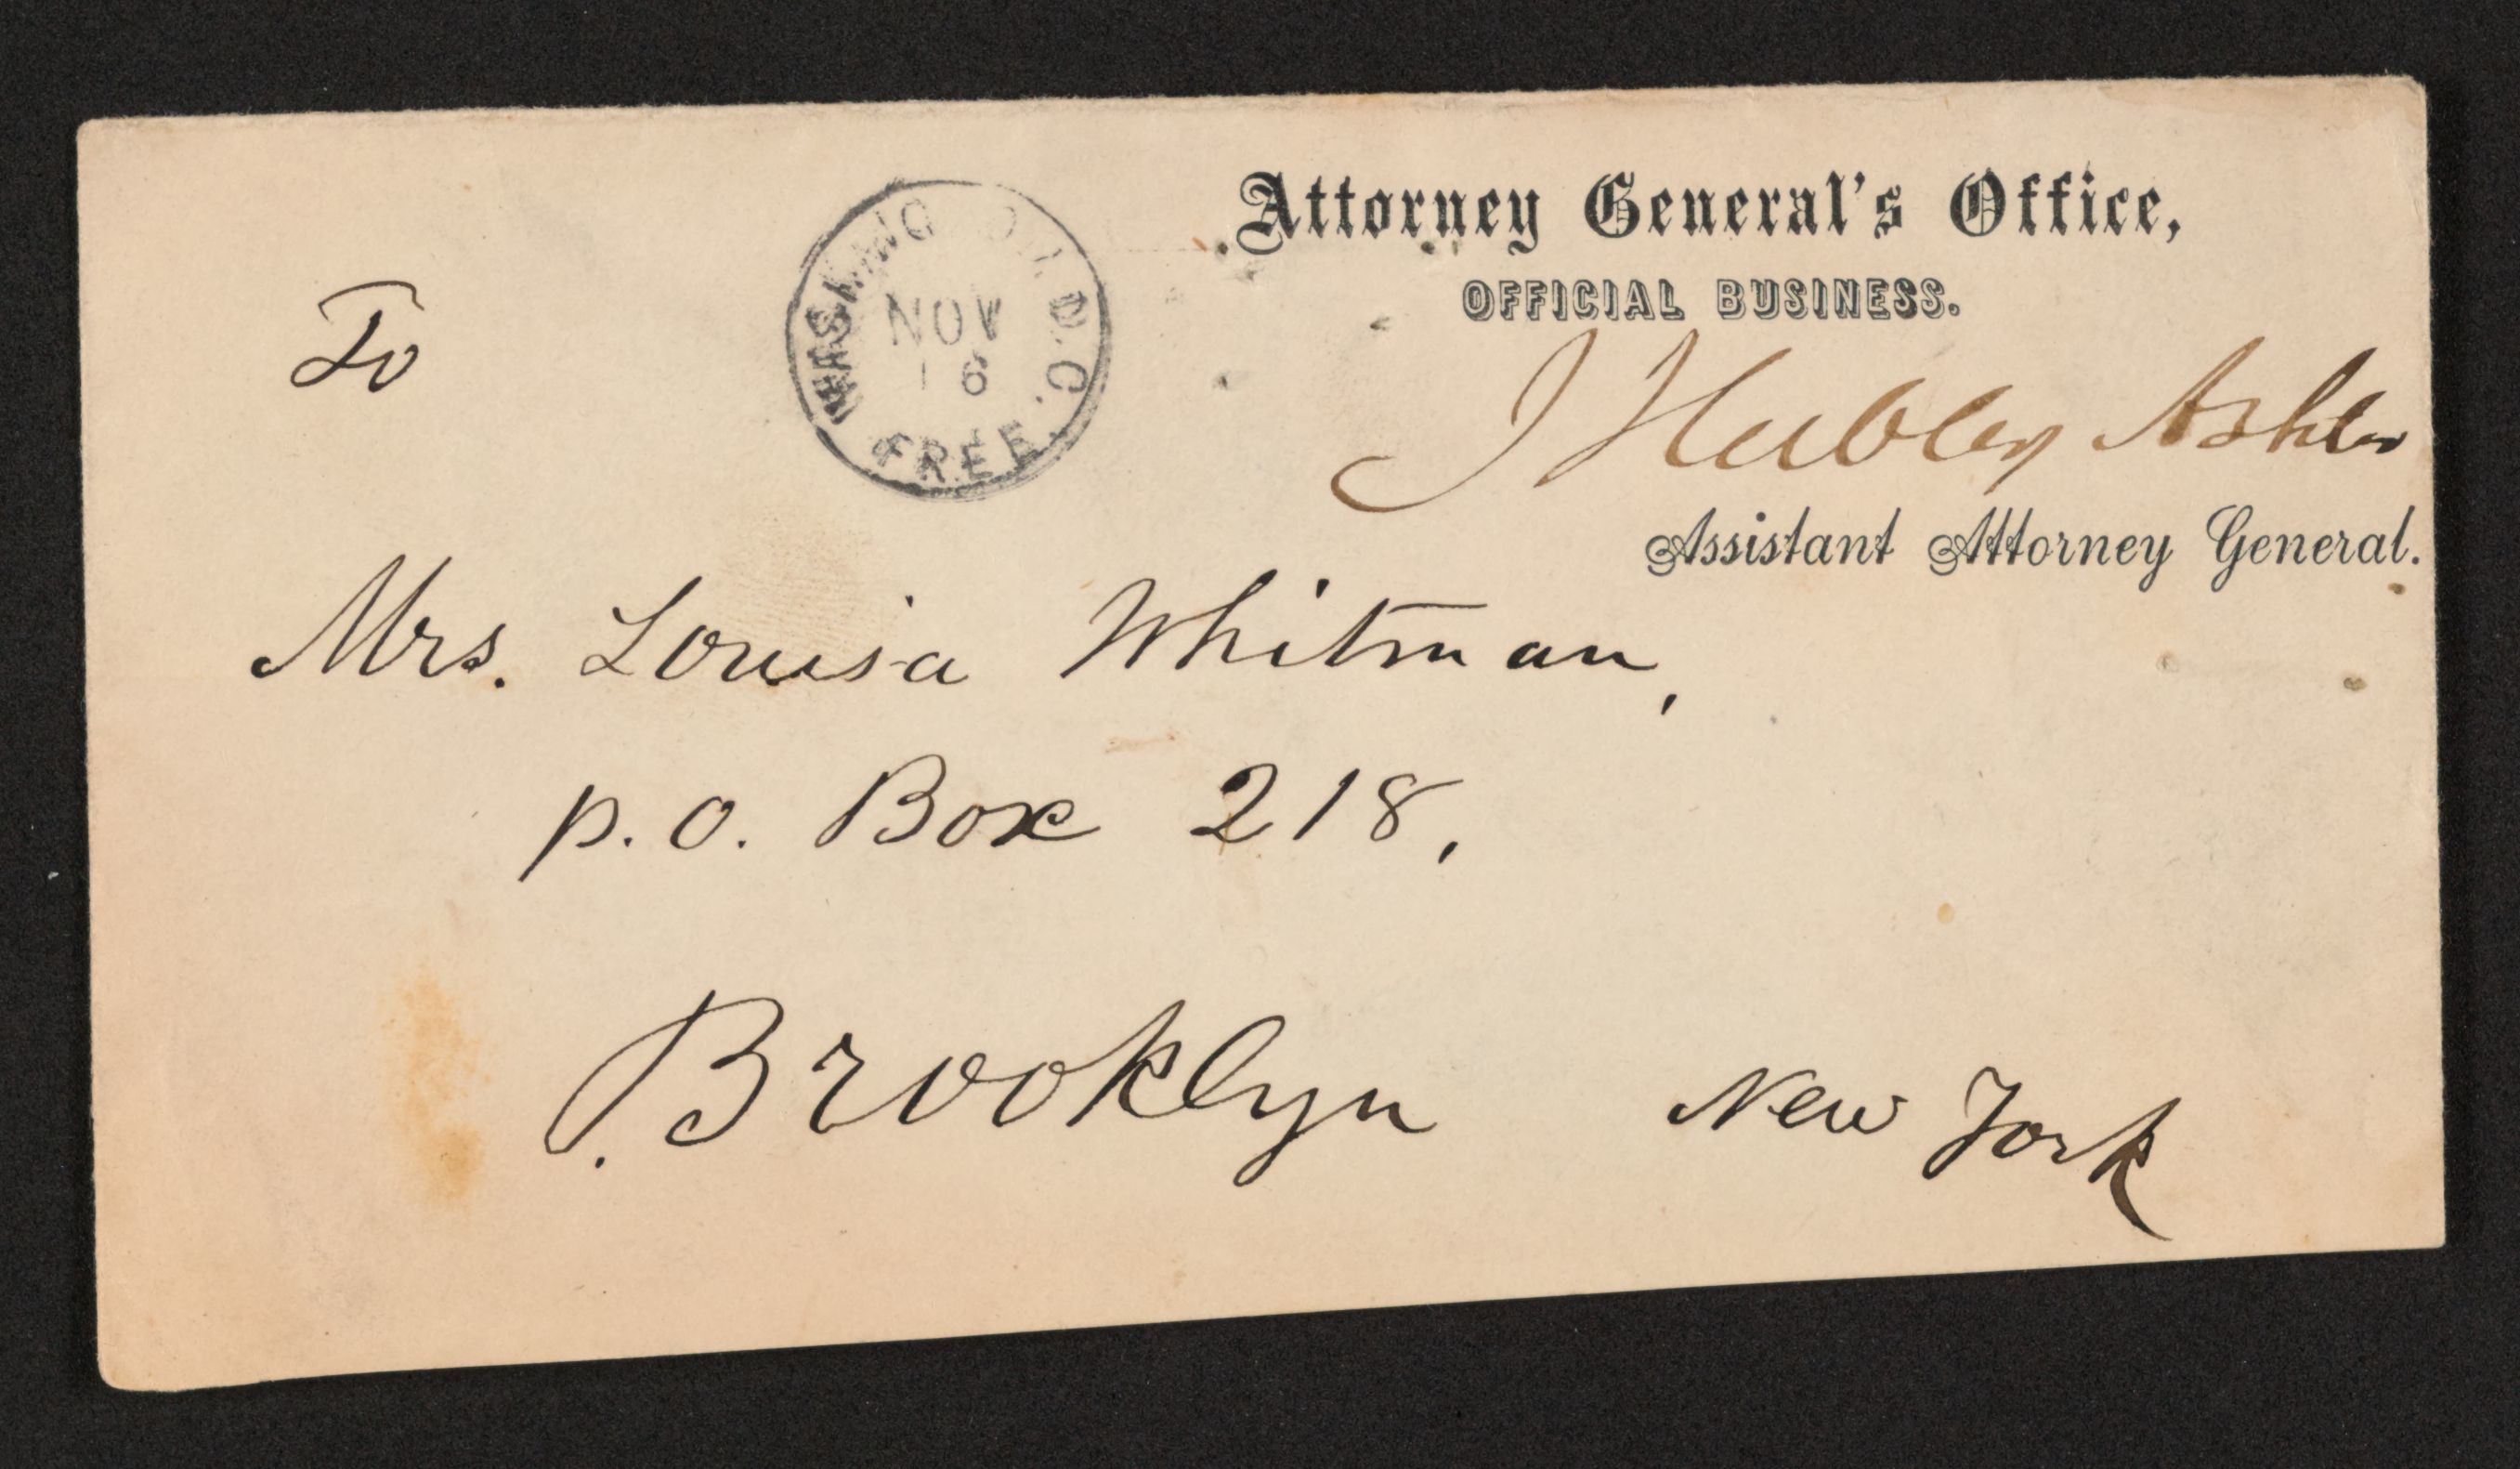 Attorney General's Office,
OFFICIAL BUSINESS.
J Hubley Ashton
Assistant Attorney General.
WASHINGTON. D.C.
NOV
16
FREE
To
Mrs. Louisa Whitman,
p. o. Box 218,
Brooklyn New York